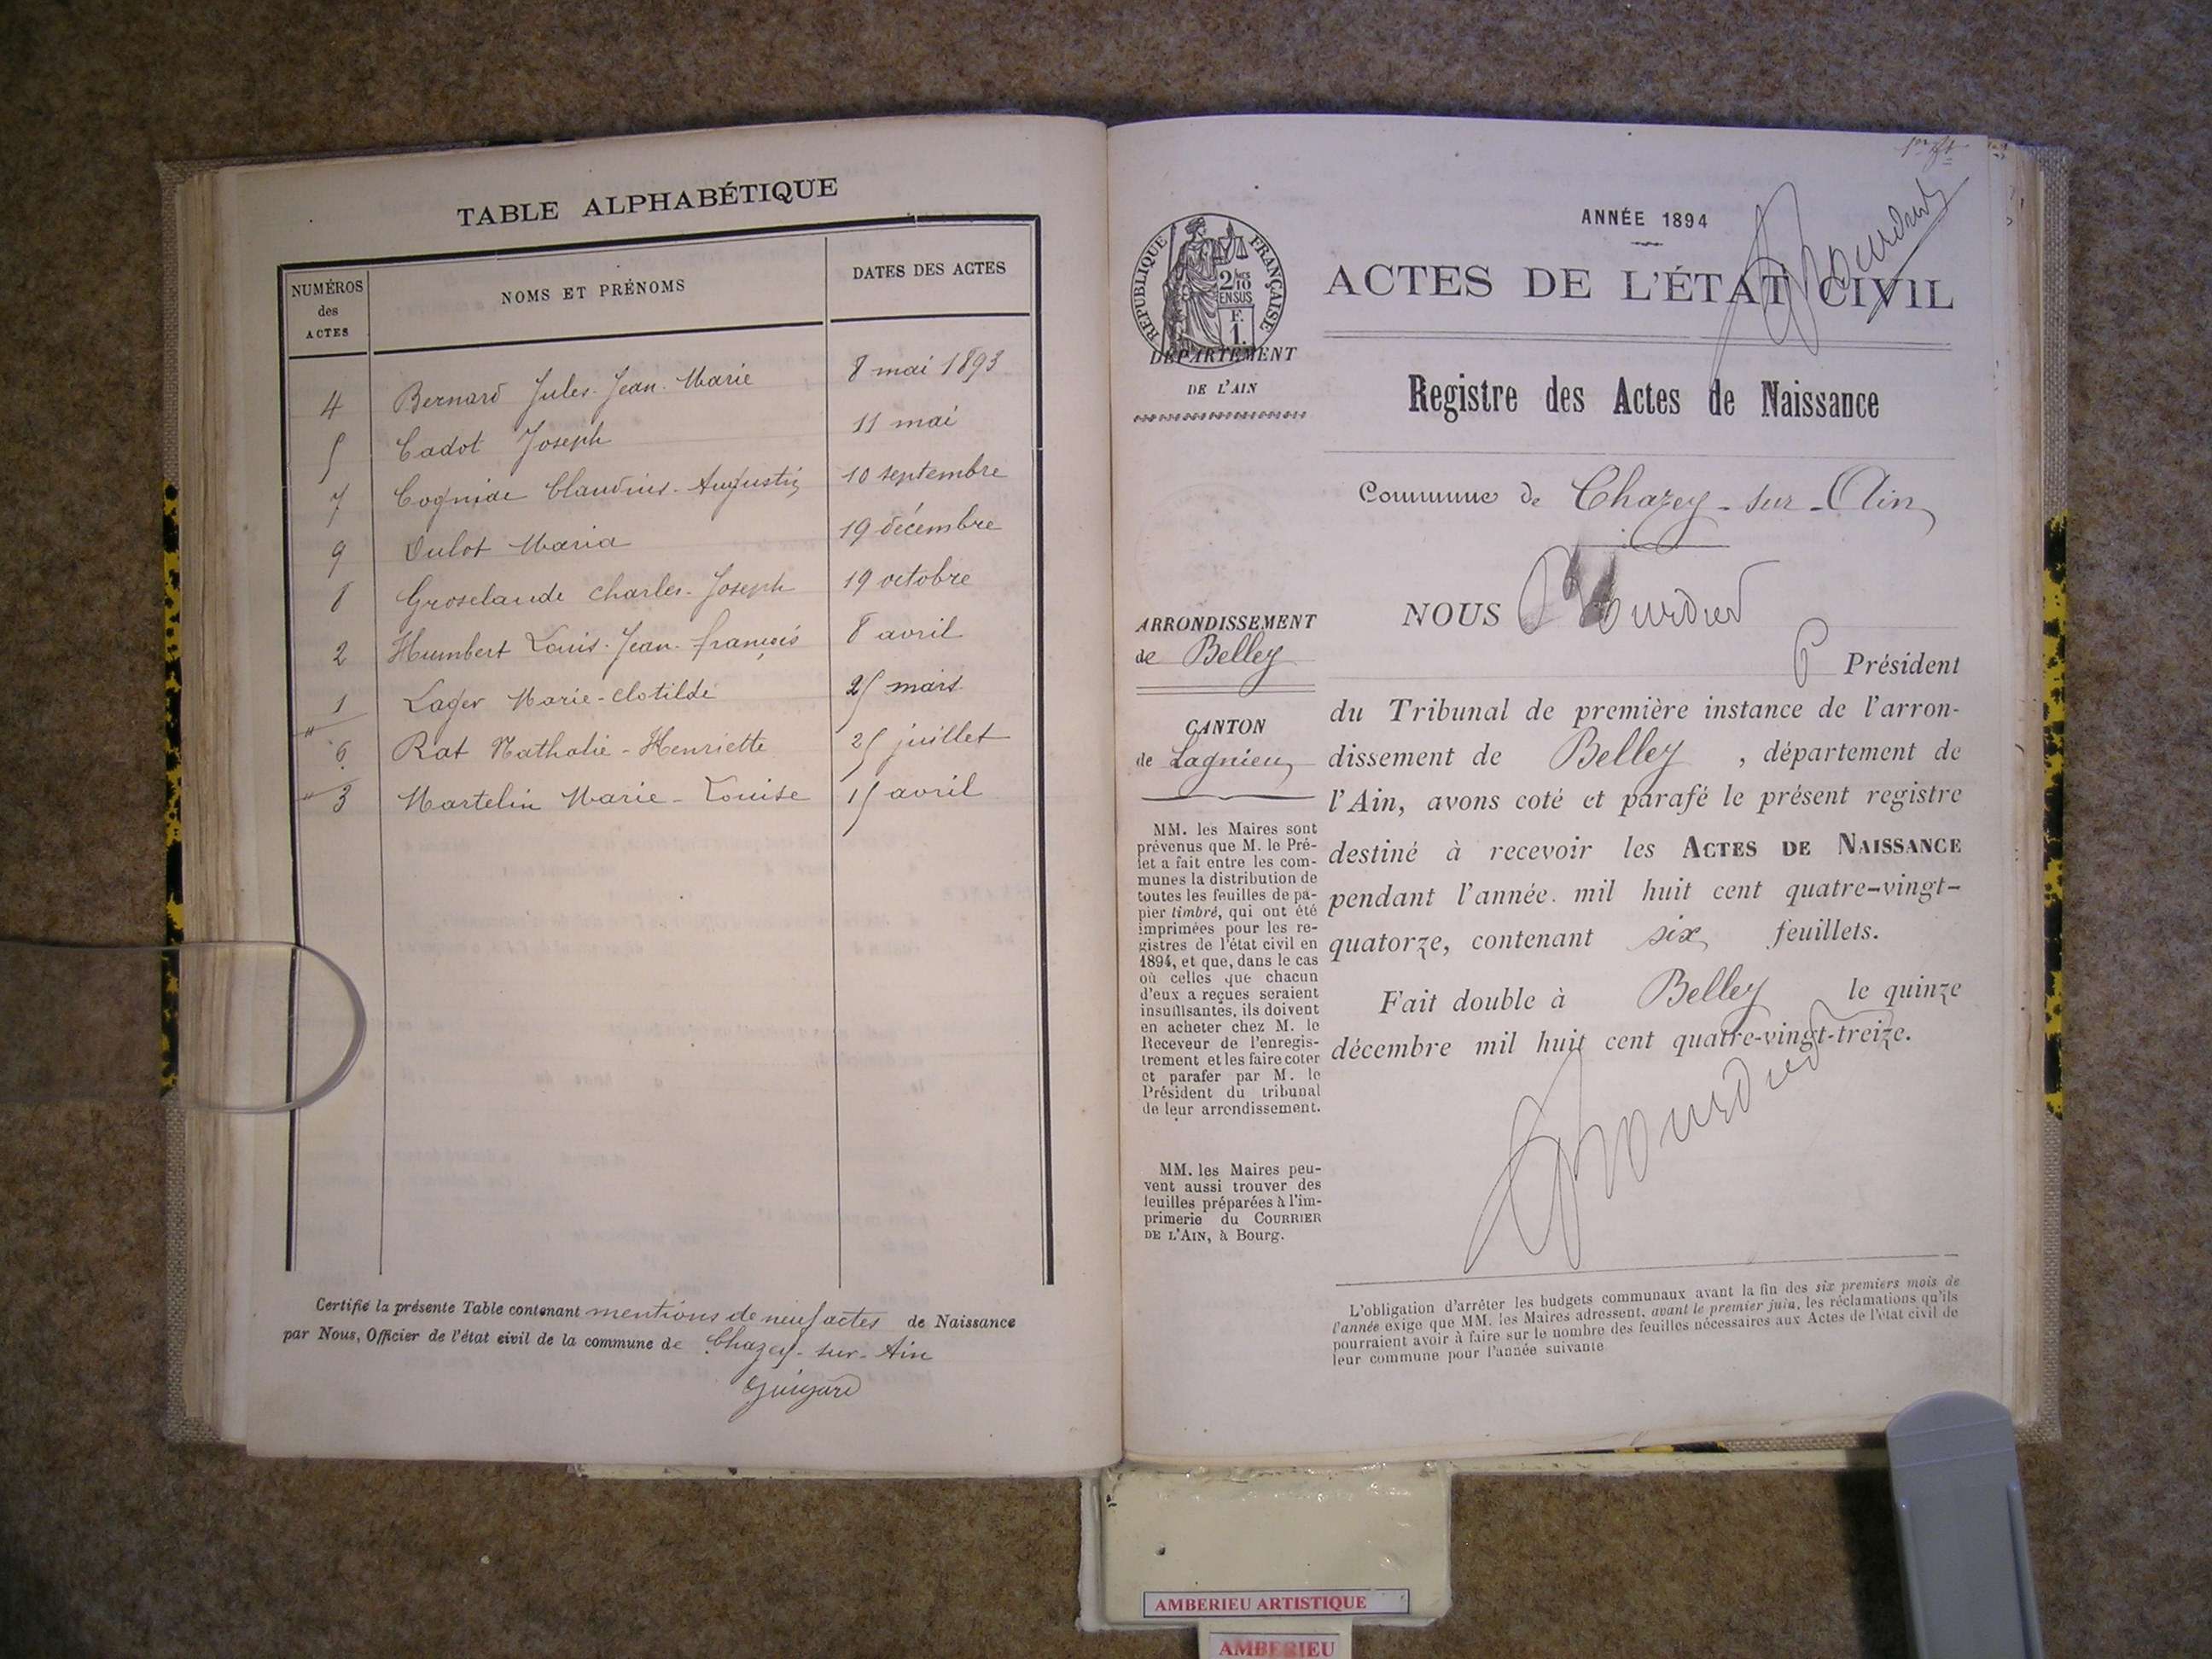 TABLE ALPHABÉTIQUE
NUMÉROS des ACTES
NOMS ET PRÉNOMS
DATES DES ACTES
4 Bernard Jules-Jean-Marie 8 mai 1893
5 Cadot Joseph 11 mai
7 Claudius-Augustin 10 septembre
9 Dulot Maria 19 décembre
8 Groselaude Charles-Joseph 19 octobre
2 Humbert Louis-Jean-françois 8 avril
1 Lager Marie-Clotilde 25 mars
" 6 Rat Nathalie-Henriette 25 juillet
" 3 Martelin Marie-Louise 15 avril
Certifié la présente Table contenant mentions de neuf actes de Naissance
par Nous, Officier de l'état civil de la commune de Chazey-sur-Ain
Guigard
ANNÉE 1894
ACTES DE L'ÉTAT CIVIL
RÉPUBLIQUE FRANÇAISE
2/10 EN SUS
F. 1.
DÉPARTEMENT
DE L'AIN
Registre des Actes de Naissance
Commune de Chazey-sur-Ain
ARRONDISSEMENT
de Belley
CANTON
de Lagnieu
MM. les Maires sont
prévenus que M. le Pré-
fet a fait entre les com-
munes la distribution de
toutes les feuilles de pa-
pier timbré, qui ont été
imprimées pour les re-
gistres de l'état civil en
1894, et que, dans le cas
où celles que chacun
d'eux a reçues seraient
insuffisantes, ils doivent
en acheter chez M. le
Receveur de l'enregis-
trement et les faire coter
et parafer par M. le
Président du tribunal
de leur arrondissement.
MM. les Maires peu-
vent aussi trouver des
feuilles préparées à l'im-
primerie du COURRIER
DE L'AIN, à Bourg.
NOUS
Président
du Tribunal de première instance de l'arron-
dissement de Belley , département de
l'Ain, avons coté et parafé le présent registre
destiné à recevoir les ACTES DE NAISSANCE
pendant l'année. mil huit cent quatre-vingt-
quatorze, contenant six feuillets.
Fait double à Belley le quinze
décembre mil huit cent quatre-vingt-treize.
L'obligation d'arrêter les budgets communaux avant la fin des six premiers mois de
l'année exige que MM. les Maires adressent, avant le premier juin, les réclamations qu'ils
pourraient avoir à faire sur le nombre des feuilles nécessaires aux Actes de l'état civil de
leur commune pour l'année suivante
AMBERIEU ARTISTIQUE
AMBERIEU